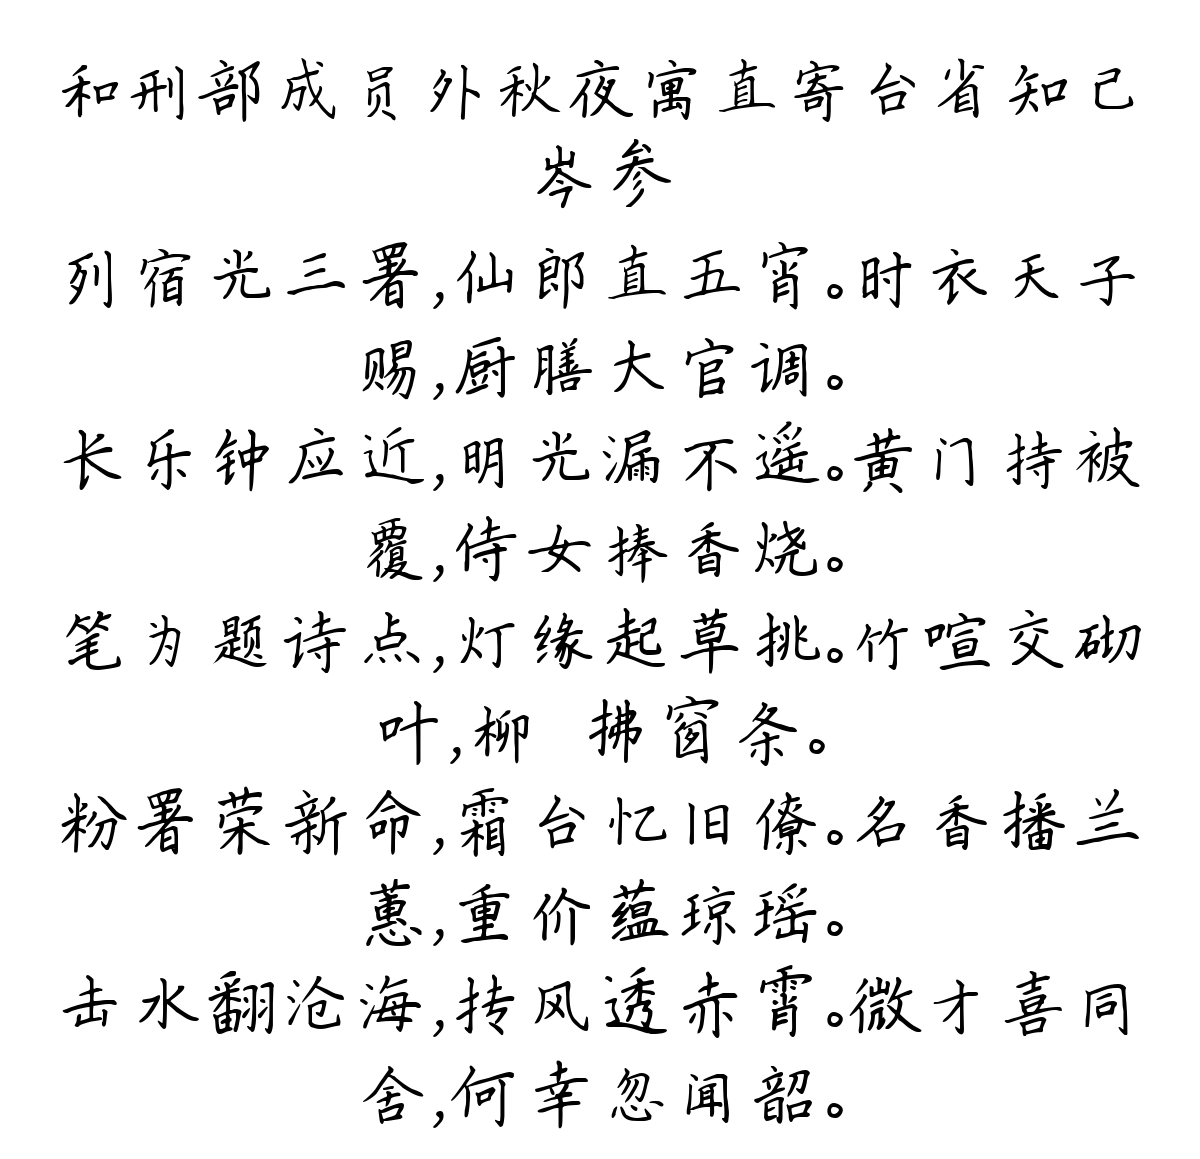 和刑部成员外秋夜寓直寄台省知己
岑参
列宿光三署,仙郎直五宵。时衣天子
赐,厨膳大官调。
长乐钟应近,明光漏不遥。黄门持被
覆,侍女捧香烧。
笔为题诗点,灯缘起草挑。竹喧交砌
叶,柳 拂窗条。
粉署荣新命,霜台忆旧僚。名香播兰
蕙,重价蕴琼瑶。
击水翻沧海,抟风透赤霄。微才喜同
舍,何幸忽闻韶。